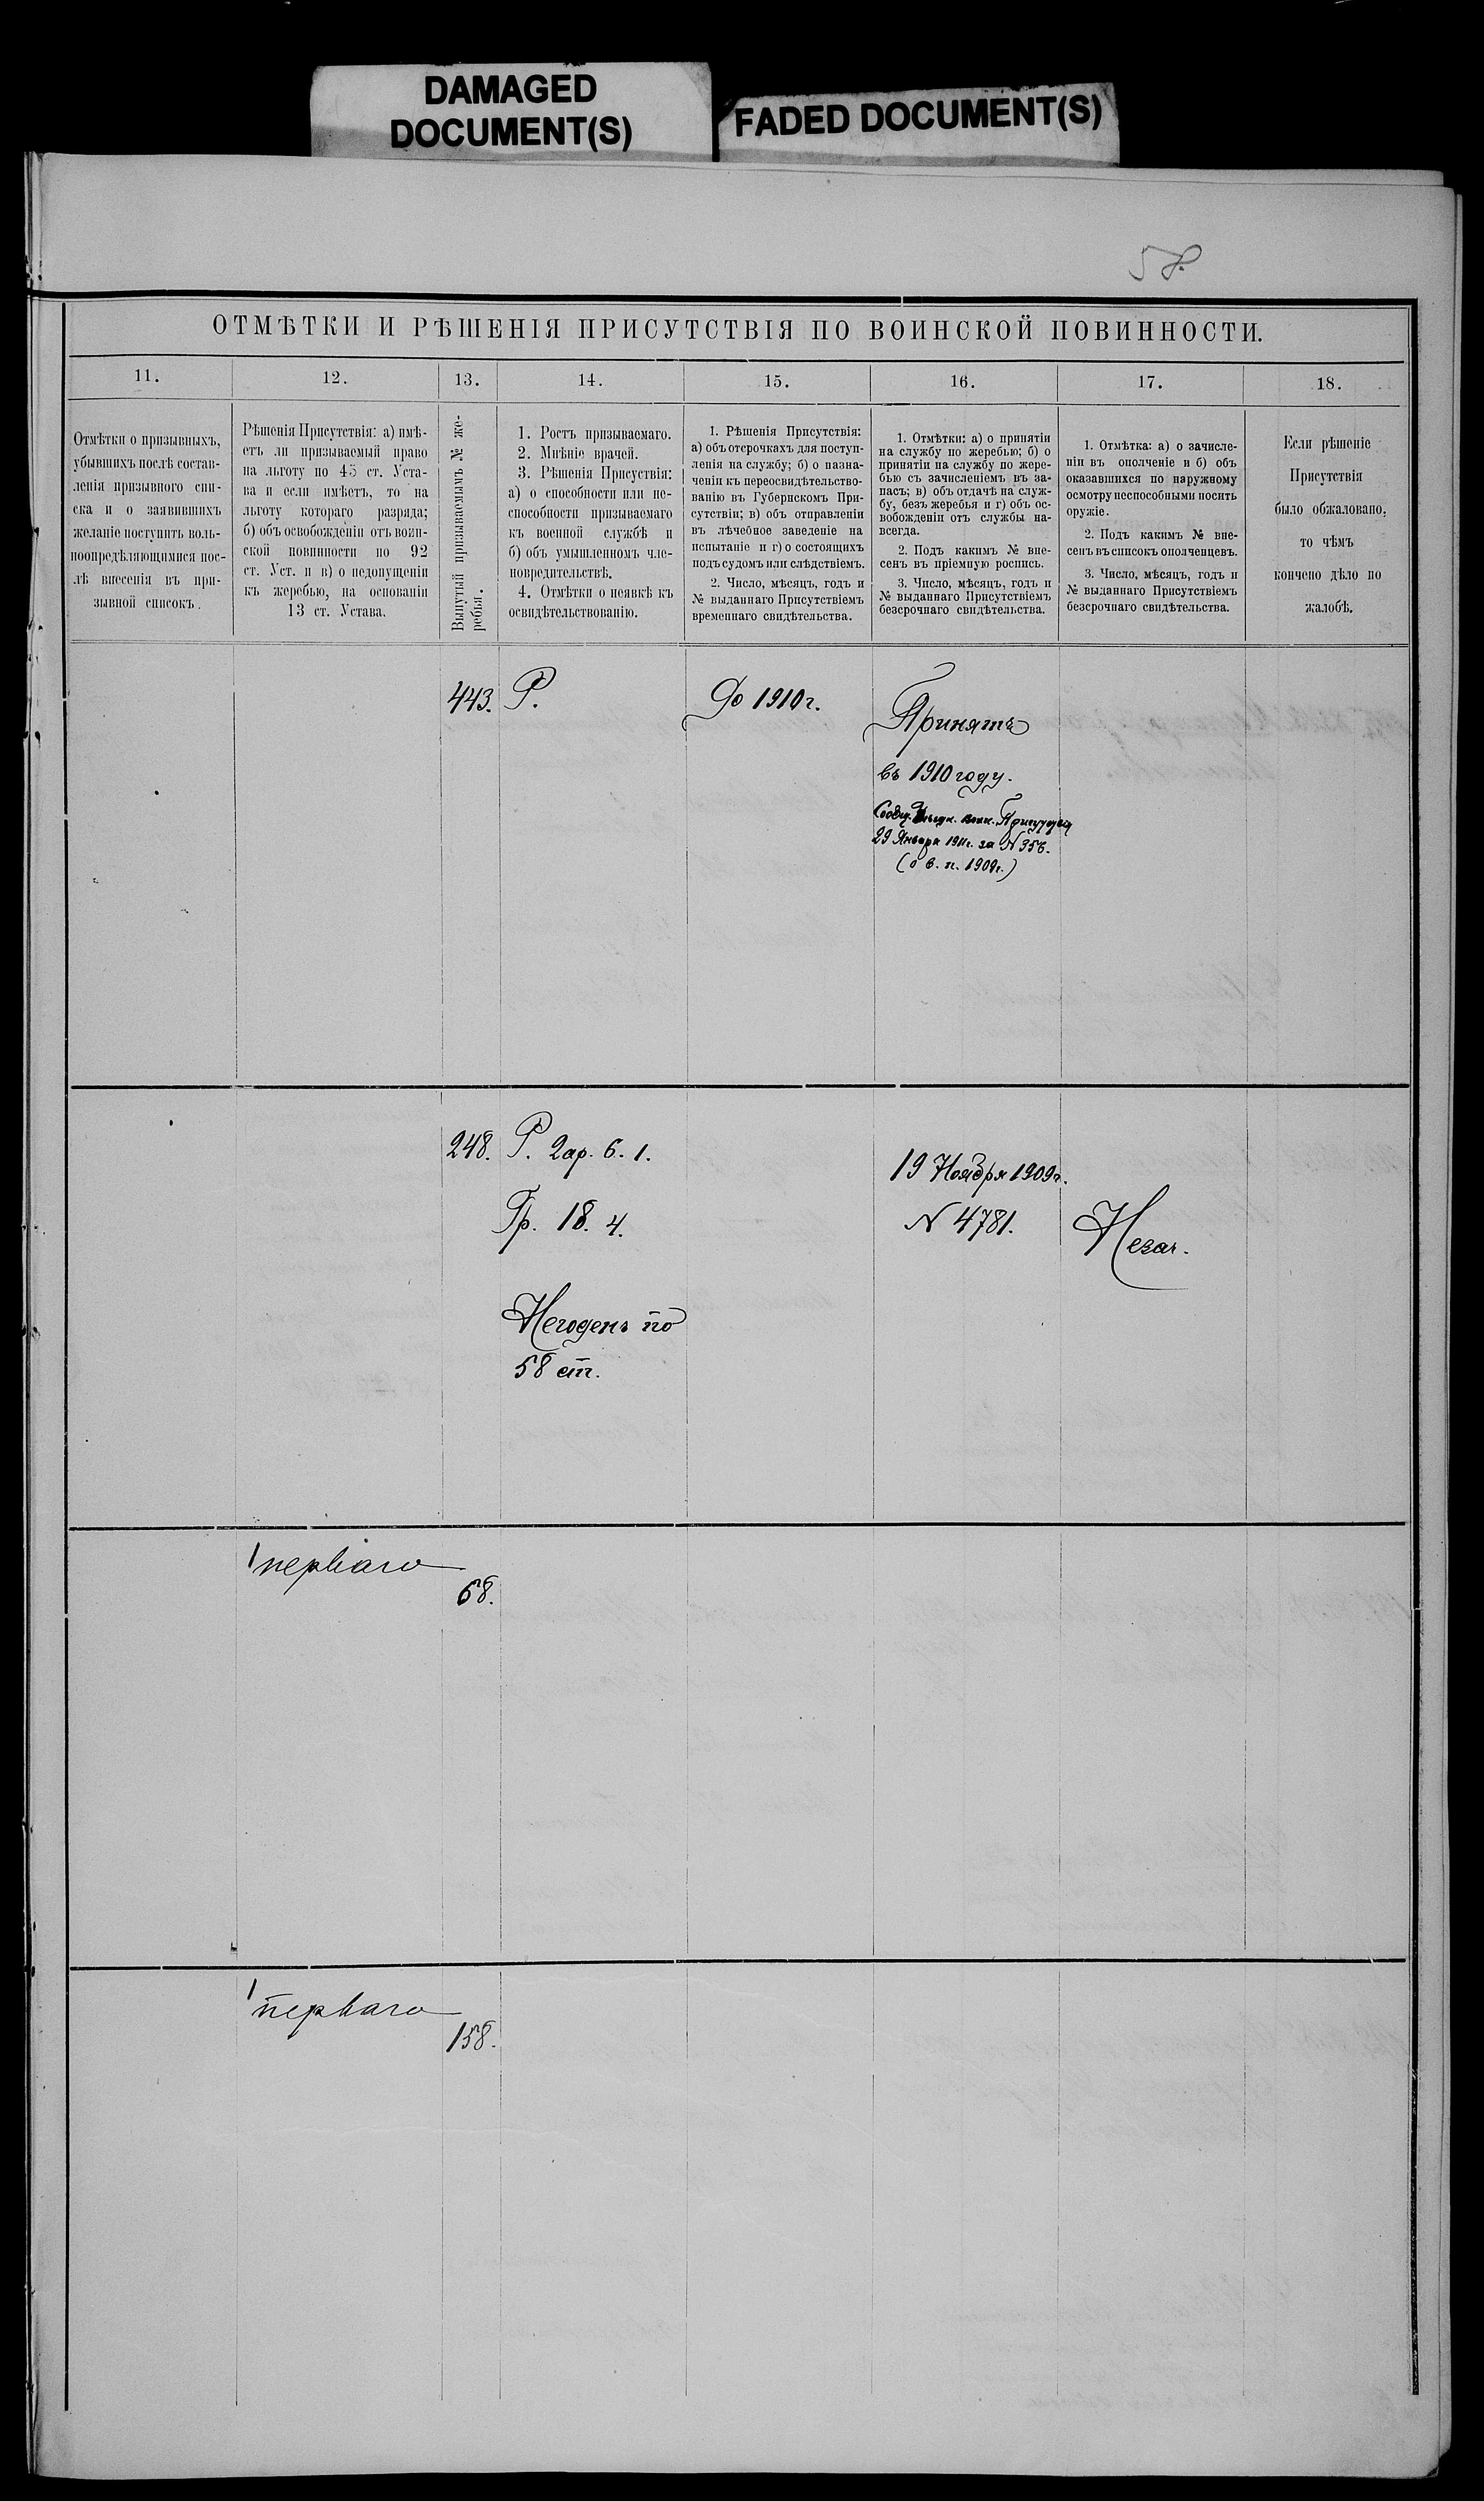 DAMAGED
DOCUMENT(S)
FADED DOCUMENT(S)
58.
ОТМѢТКИ И РѢШЕНІЯ ПРИСУТСТВІЯ ПО ВОИНСКОЙ ПОВИННОСТИ.
11.
12.
13.
14.
15.
16.
17.
18.
Отмѣтки о призывныхъ,
убывшихъ послѣ состав-
ленія призывного спи-
ска и о заявившихъ
желаніе поступить воль-
ноопредѣляющимися пос-
лѣ внесенія въ при-
зывной списокъ.
Рѣшенія Присутствія: а) имѣ-
етъ ли призываемый право
на льготу по 45 ст. Уста-
ва и если имѣетъ, то на
льготу котораго разряда;
б) объ освобожденіи отъ воин-
ской повинности по 92
ст. Уст. и в) о недопущеніи
къ жеребью, на основаніи
13 ст. Устава.
Вынутый призываемымъ № же-
ребья.
1. Ростъ призываемаго.
2. Мнѣніе врачей.
3. Рѣшенія Присуствія:
а) о способности или не-
способности призываемаго
къ военной службѣ и
б) объ умышленномъ чле-
новредительствѣ.
4. Отмѣтки о неявкѣ къ
освидѣтельствованію.
1. Рѣшенія Присутствія:
а) объ отсрочкахъ для поступ-
ленія на службу; б) о назна-
ченіи къ переосвидѣтельство-
ванію въ Губернскомъ При-
сутствіи; в) объ отправленіи
въ лѣчебное заведеніе на
испытаніе и г) о состоящихъ
подъ судомъ или слѣдствіемъ.
2. Число, мѣсяцъ, годъ и
№ выданнаго Присутствіемъ
временнаго свидѣтельства.
1. Отмѣтки: а) о принятіи
на службу по жеребью; б) о
принятіи на службу по жере-
бью съ зачисленіемъ въ за-
пасъ; в) объ отдачѣ на служ-
бу, безъ жеребья и г) объ ос-
вобожденіи отъ службы на-
всегда.
2. Подъ какимъ № вне-
сенъ въ пріемную роспись.
3. Число, мѣсяцъ, годъ и
№ выданнаго Присутствіемъ
безсрочнаго свидѣтельства.
1. Отмѣтка: а) о зачисле-
ніи въ ополченіе и б) объ
оказавшихся по наружному
осмотру неспособными носить
оружіе.
2. Подъ какимъ № вне-
сенъ въ списокъ ополченцевъ.
3. Число, мѣсяцъ, годъ и
№ выданнаго Присутствіемъ
безсрочнаго свидѣтельства.
Если рѣшеніе
Присутствія
было обжаловано,
то чѣмъ
кончено дѣло по
жалобѣ.
443.
Р.
До 1910 г.
Принятъ
въ 1910 году.
29 Января 1911 г. за №
(о в. п. 1909 г.)
248.
Р. 2 ар. 6. 1.
Гр. 18. 4.
Негоденъ по
58 ст.
19 Ноября 1909 г.
№ 4781.
Незач.
1 перваго
68.
1 перваго
158.